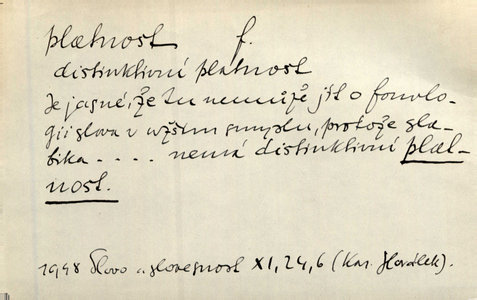 platnost f.
distinktivní platnost
Je jasné, že tu nemůže jít o fonolo-
gii slova v užším smyslu, protože sla-
bika .... nemá distinktivní plat-
nost.
1948 Slovo a slovesnost XI, 24, 6 (Kar. Horálek).